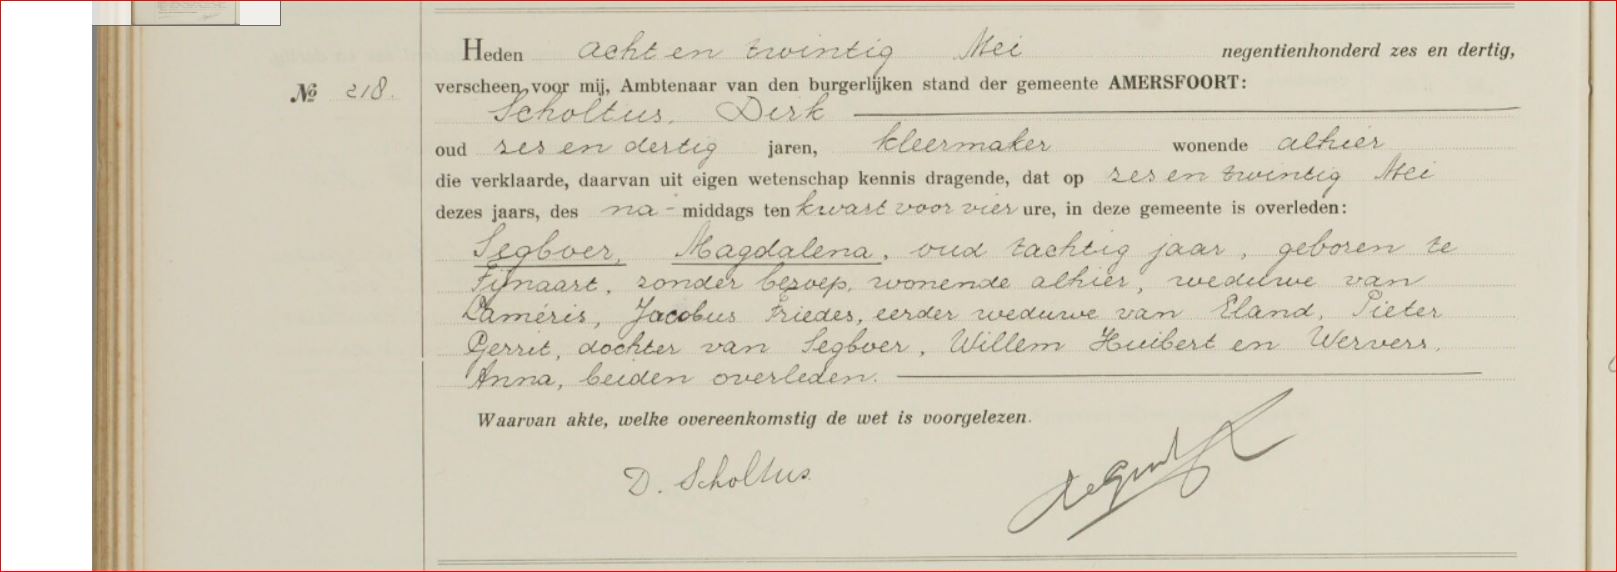 Heden acht en twintig Mei negentienhonderd zes en dertig,
№ 218. verscheen voor mij, Ambtenaar van den burgerlijken stand der gemeente AMERSFOORT:
Scholtus, Dirk
oud zes en dertig jaren, kleermaker wonende alhier
die verklaarde, daarvan uit eigen wetenschap kennis dragende, dat op zes en twintig Mei
dezes jaars, des na- middags ten kwart voor vier ure, in deze gemeente is overleden:
Segboer, Magdalena, oud tachtig jaar, geboren te
Fijnaart, zonder beroep, wonende alhier, weduwe van
Laméris, Jacobus Friedes, eerder weduwe van Eland, Pieter
Gerrit, dochter van Segboer, Willem Huibert en Wervers,
Anna, beiden overleden.
Waarvan akte, welke overeenkomstig de wet is voorgelezen.
D. Scholtus